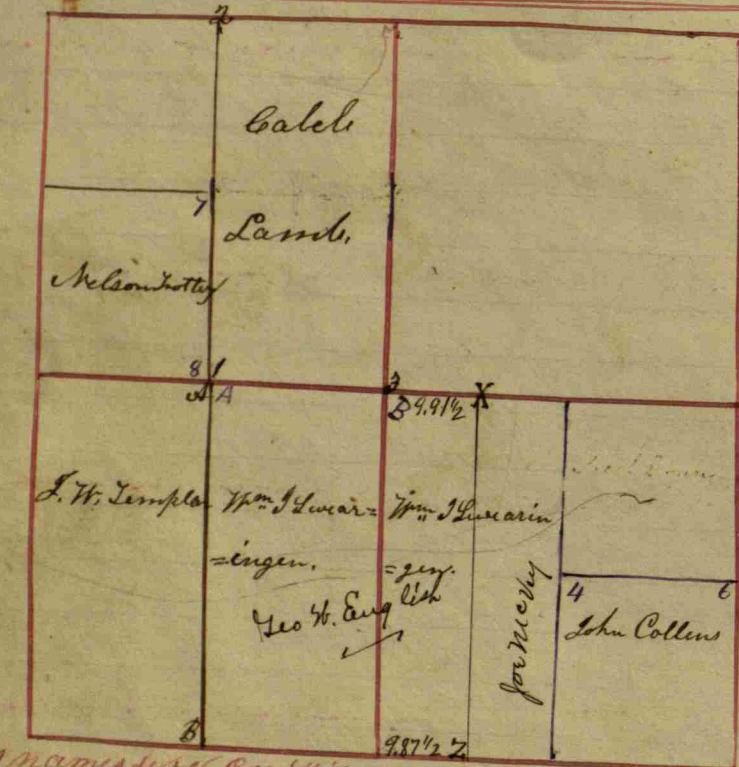 2
Caleb
7
Lamb,
Nelson Trotter
8 1
3
A A
B 9.91½ X
J. W. Templar Wm J Swear= Wm J Swearin
=ingen. =gen.
Geo W. English
4 6
John Collins
B
9.87½ Z
names